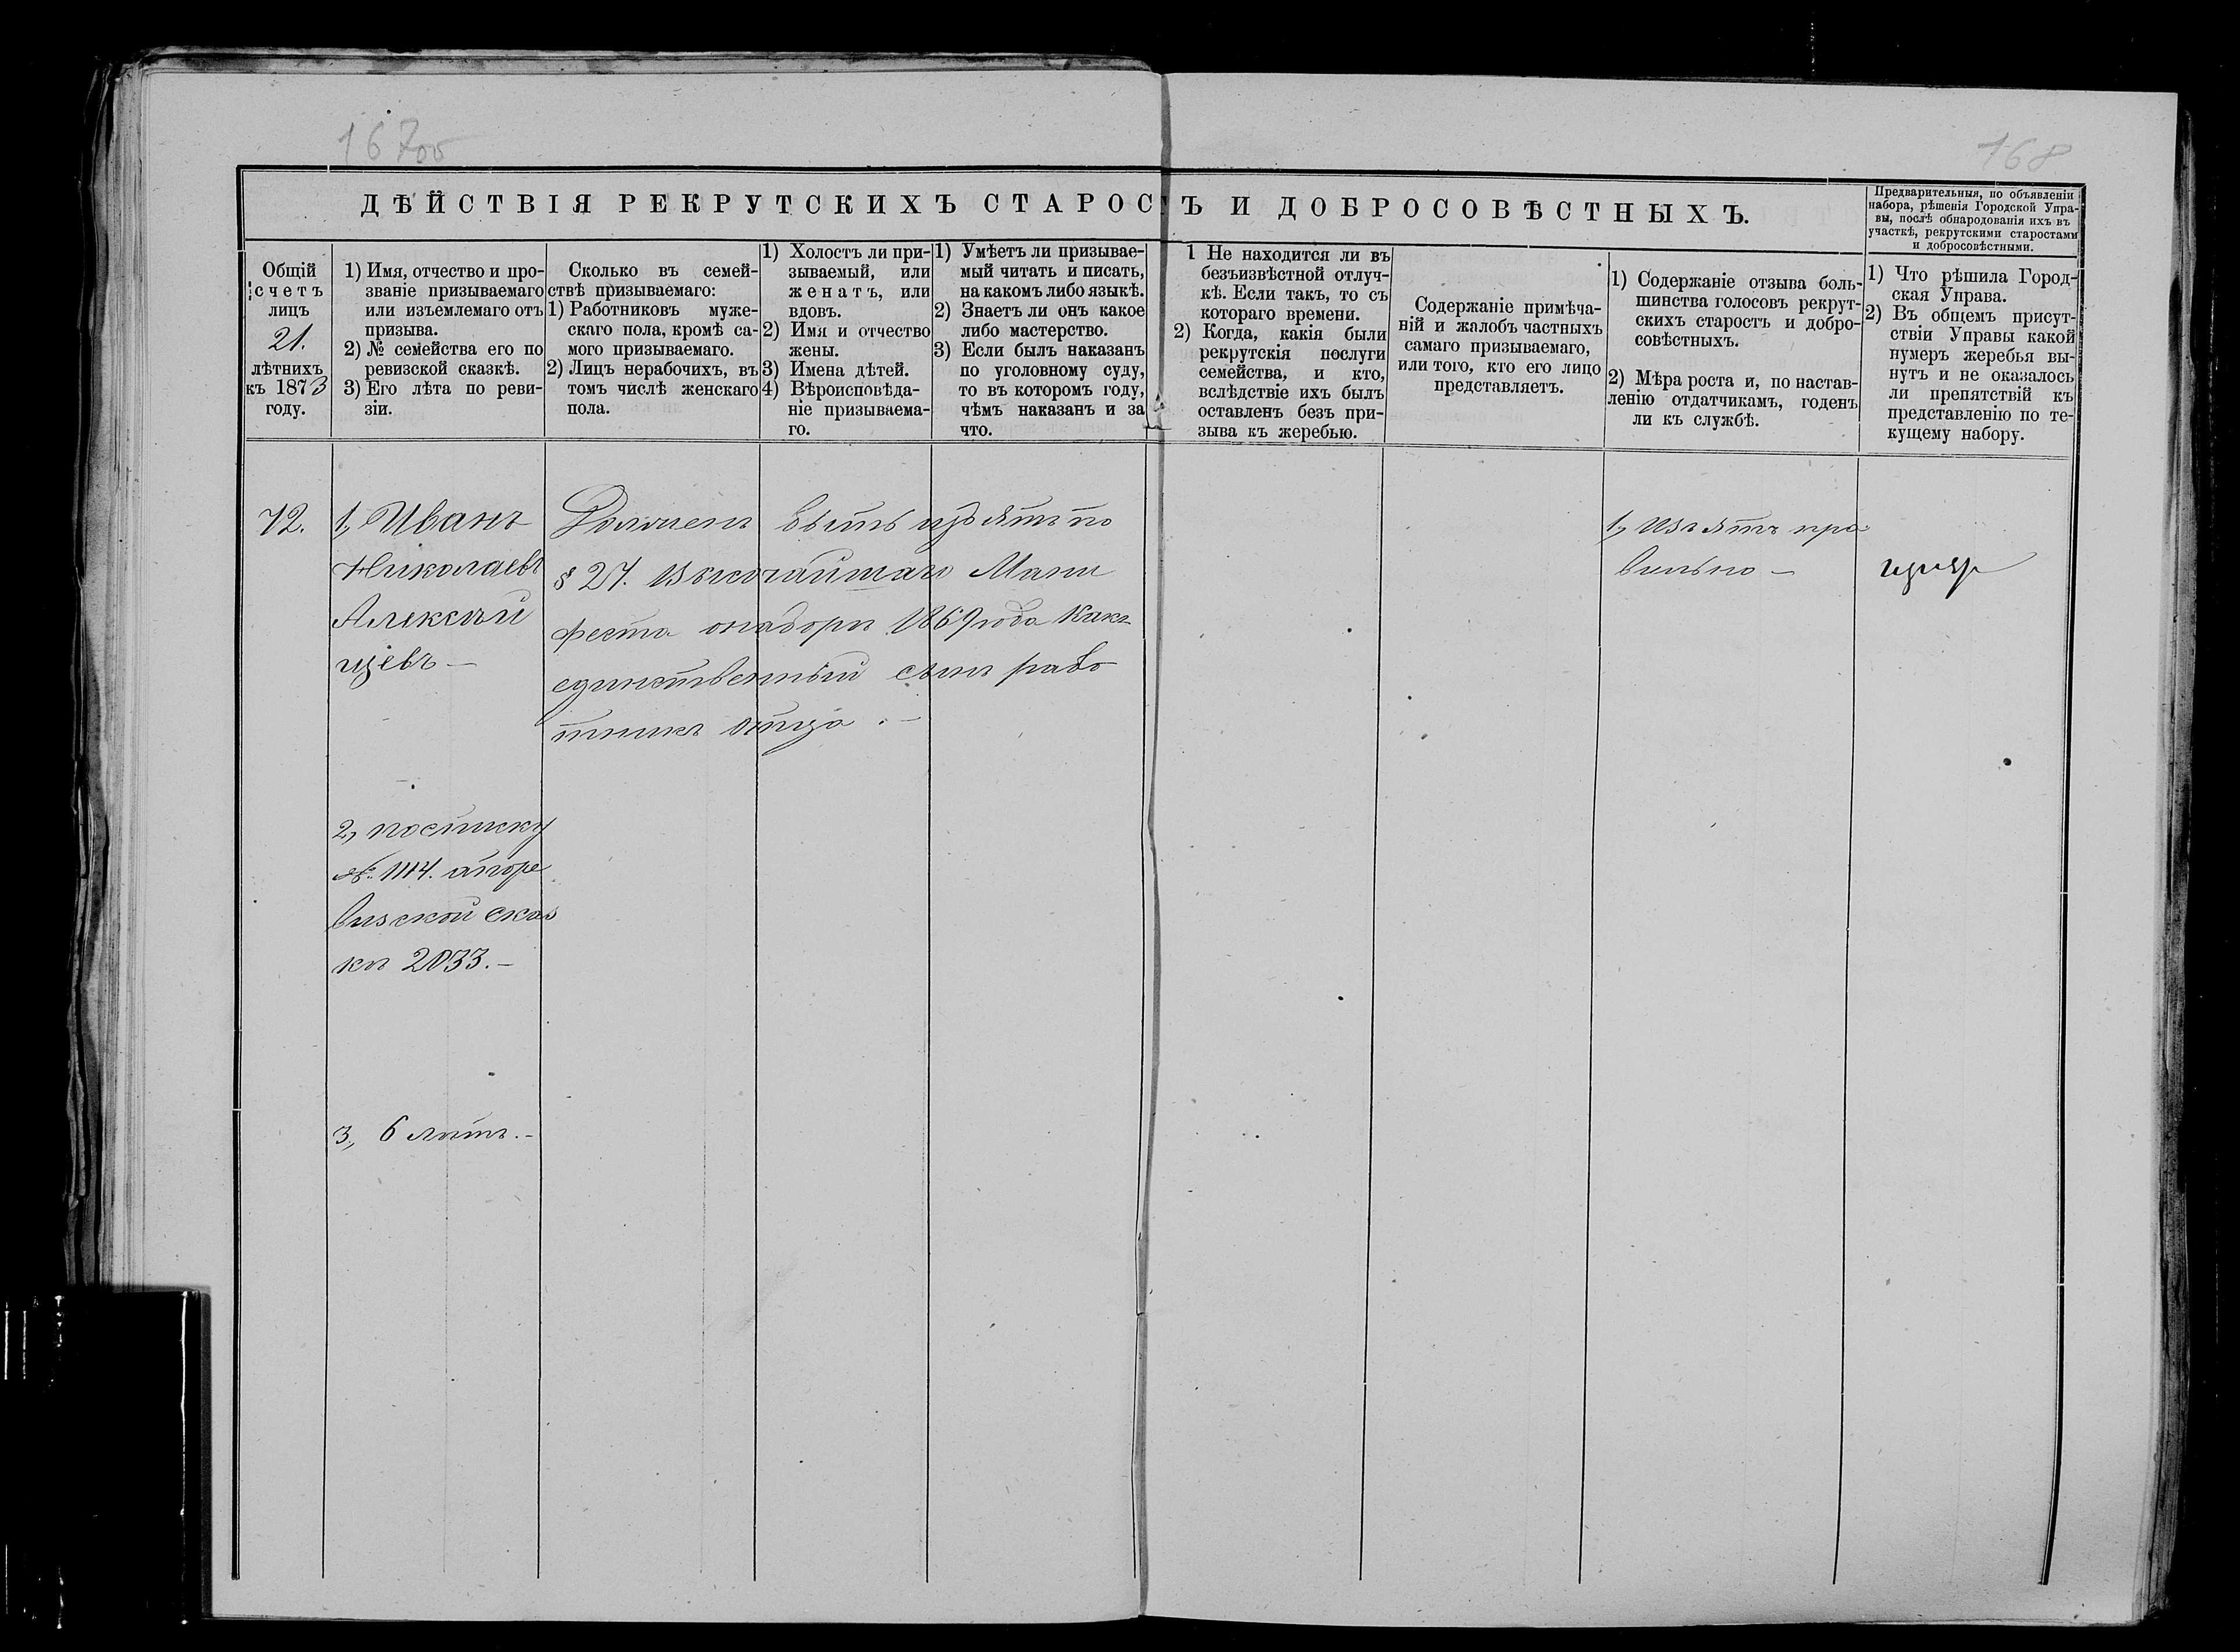 167об
168
ДѢЙСТВІЯ РЕКРУТСКИХЪ СТАРОСТЪ И ДОБРОСОВѢСТНЫХЪ.
Предварительныя, по объявленіи
набора, рѣшенія Городской Упра-
вы, послѣ обнародованія ихъ въ
участкѣ, рекрутскими старостами
и добросовѣстными.
Общій
счетъ
лицъ
21.
лѣтнихъ
къ 1873
году.
1) Имя, отчество и про-
званіе призываемаго
или изъемлемаго отъ
призыва.
2) № семейства его по
ревизской сказкѣ.
3) Его лѣта по реви-
зіи.
Сколько въ семей-
ствѣ призываемаго:
1) Работниковъ муже-
скаго пола, кромѣ са-
мого призываемаго.
2) Лицъ нерабочихъ, въ
томъ числѣ женскаго
пола.
1) Холостъ ли при-
зываемый, или
женатъ, или
вдовъ.
2) Имя и отчество
жены.
3) Имена дѣтей.
4) Вѣроисповѣда-
ніе призываема-
го.
1) Умѣетъ ли призывае-
мый читать и писать,
на какомъ либо языкѣ.
2) Знаетъ ли онъ какое
либо мастерство.
3) Если былъ наказанъ
по уголовному суду,
то въ которомъ году,
чѣмъ наказанъ и за
что.
1 Не находится ли въ
безъизвѣстной отлуч-
кѣ. Если такъ, то съ
котораго времени.
2) Когда, какія были
рекрутскія послуги
семейства, и кто,
вслѣдствіе ихъ былъ
оставленъ безъ при-
зыва къ жеребью.
Содержаніе примѣча-
ній и жалобъ частныхъ
самаго призываемаго,
или того, кто его лицо
представляетъ.
1) Содержаніе отзыва боль-
шинства голосовъ рекрут-
скихъ старостъ и добро-
совѣстныхъ.
2) Мѣра роста и, по настав-
ленію отдатчикамъ, годенъ
ли къ службѣ.
1) Что рѣшила Город-
ская Управа.
2) Въ общемъ присут-
ствіи Управы какой
нумеръ жеребья вы-
нутъ и не оказалось
ли препятствій къ
представленію по те-
кущему набору.
72.
1, Иванъ
Николаевъ
Алексѣй
цевъ —
2, посписку
№ 1114. апоре
визской сказ
кѣ 2033. —
3, 6 лѣтъ. -
Долженъ быть изъятъ по
§ 27. Высочайшаго Мани
феста онаборѣ 1869 года какъ
единственный сынъ рабо
тникъ отца. —
1, Изъятъ пра
вильно —